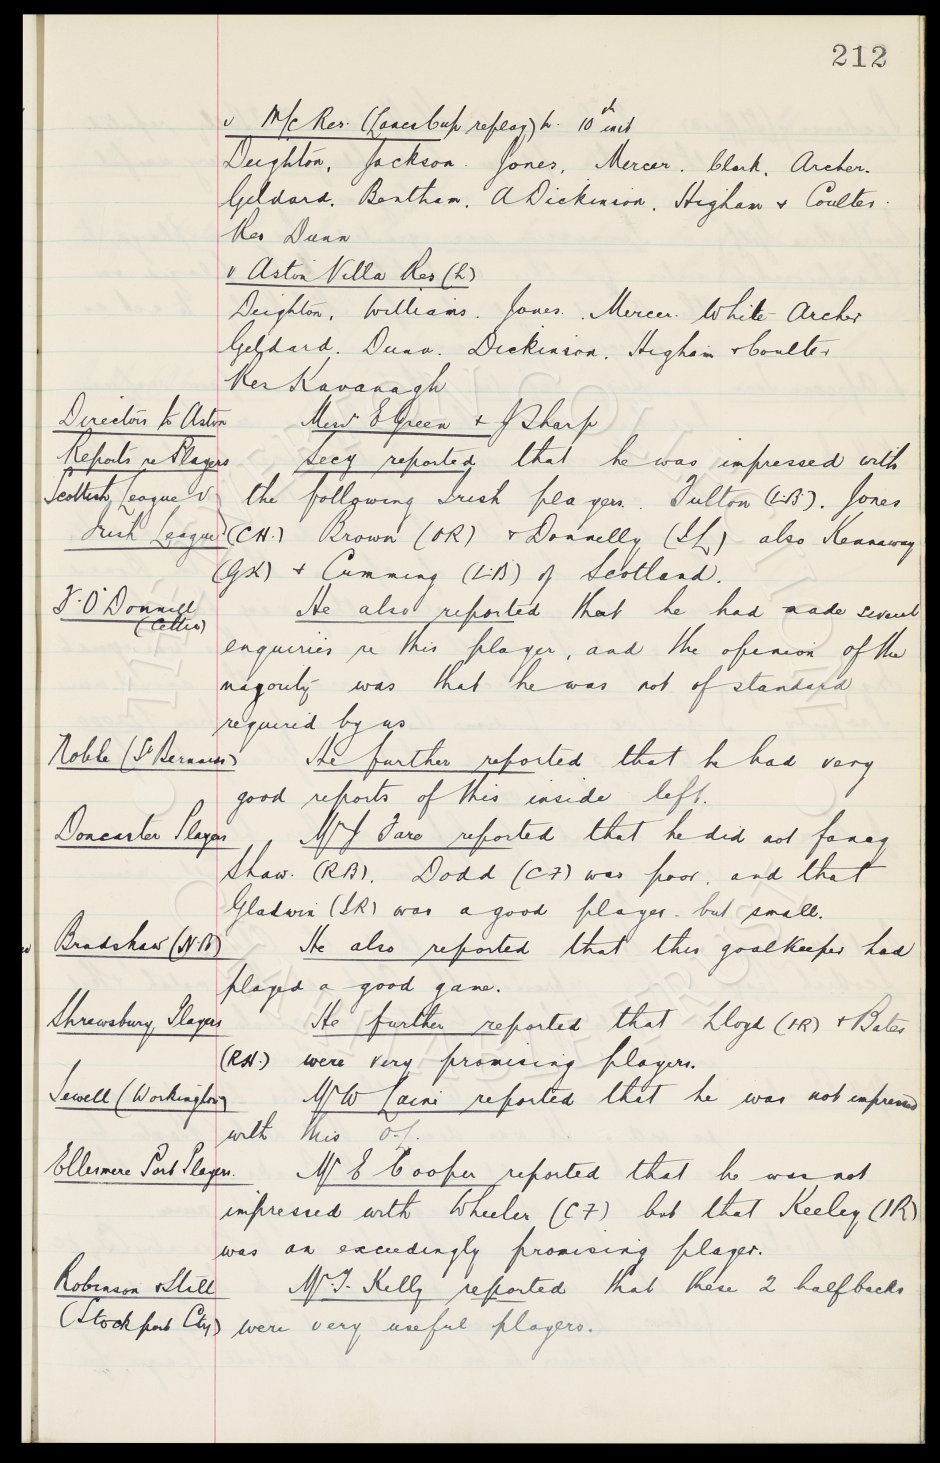 212
v M/C Res. (Lancs Cup replay) h. 10th inst
Deighton, Jackson. Jones, Mercer. Clark, Archer.
Geldard, Bentham, A Dickinson, Higham & Coulter.
Res Dunn
v Aston Villa Res (h)
Deighton, Williams. Jones. Mercer. White Archer
Geldard. Dunn. Dickinson, Higham & Coulter
Res Kavanagh
Directors to Aston Messrs E Green & J Sharp
Reports re Players Secy reported that he was impressed with
Scottish League v the following Irish players. Fulton (LB). Jones
Irish League (CH.) Brown (OR) & Donnelly (IL) also Kennaway
(GK) & Cumming (LB) of Scotland.
F. O'Donnell He also reported that he had made several
(Celtic) enquiries re this player, and the opinion of the
majority was that he was not of standard
required by us
Noble (St Bernards) He further reported that he had very
good reports of this inside left.
Doncaster Players Mr J Fare reported that he did not fancy
Shaw. (RB). Dodd (CF) was poor, and that
Gladwin (IR) was a good player but small.
Bradshaw (N.B) He also reported that this goalkeeper had
played a good game.
Shrewsbury Players He further reported that Lloyd (IR) & Bates
(RH.) were very promising players.
Sewell (Workington) Mr W Laini reported that he was not impressed
with this O.L.
Ellesmere Port Players. Mr E Cooper reported that he was not
impressed with Wheeler (CF) but that Keeley (IR)
was an exceedingly promising player.
Robinson & Still Mr F. Kelly reported that these 2 halfbacks
(Stockport Cty) were very useful players.